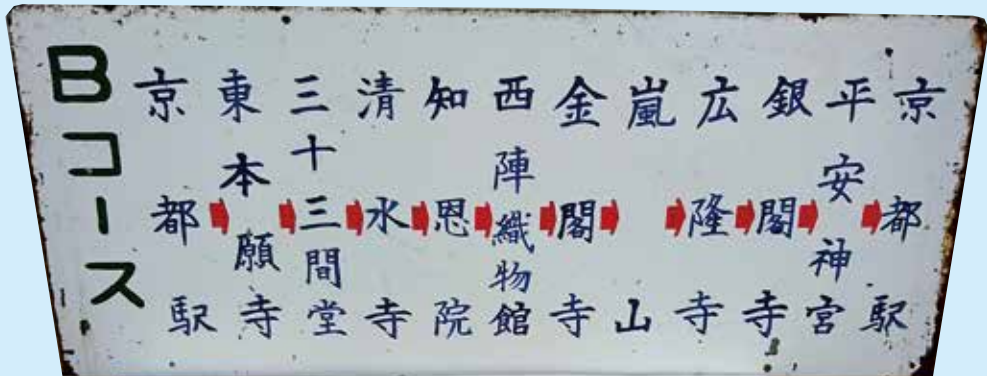 Bコース
京都駅
東本願寺
三十三間堂
清水寺
知恩院
西陣織物館
金閣寺
嵐山
広隆寺
銀閣寺
平安神宮
京都駅